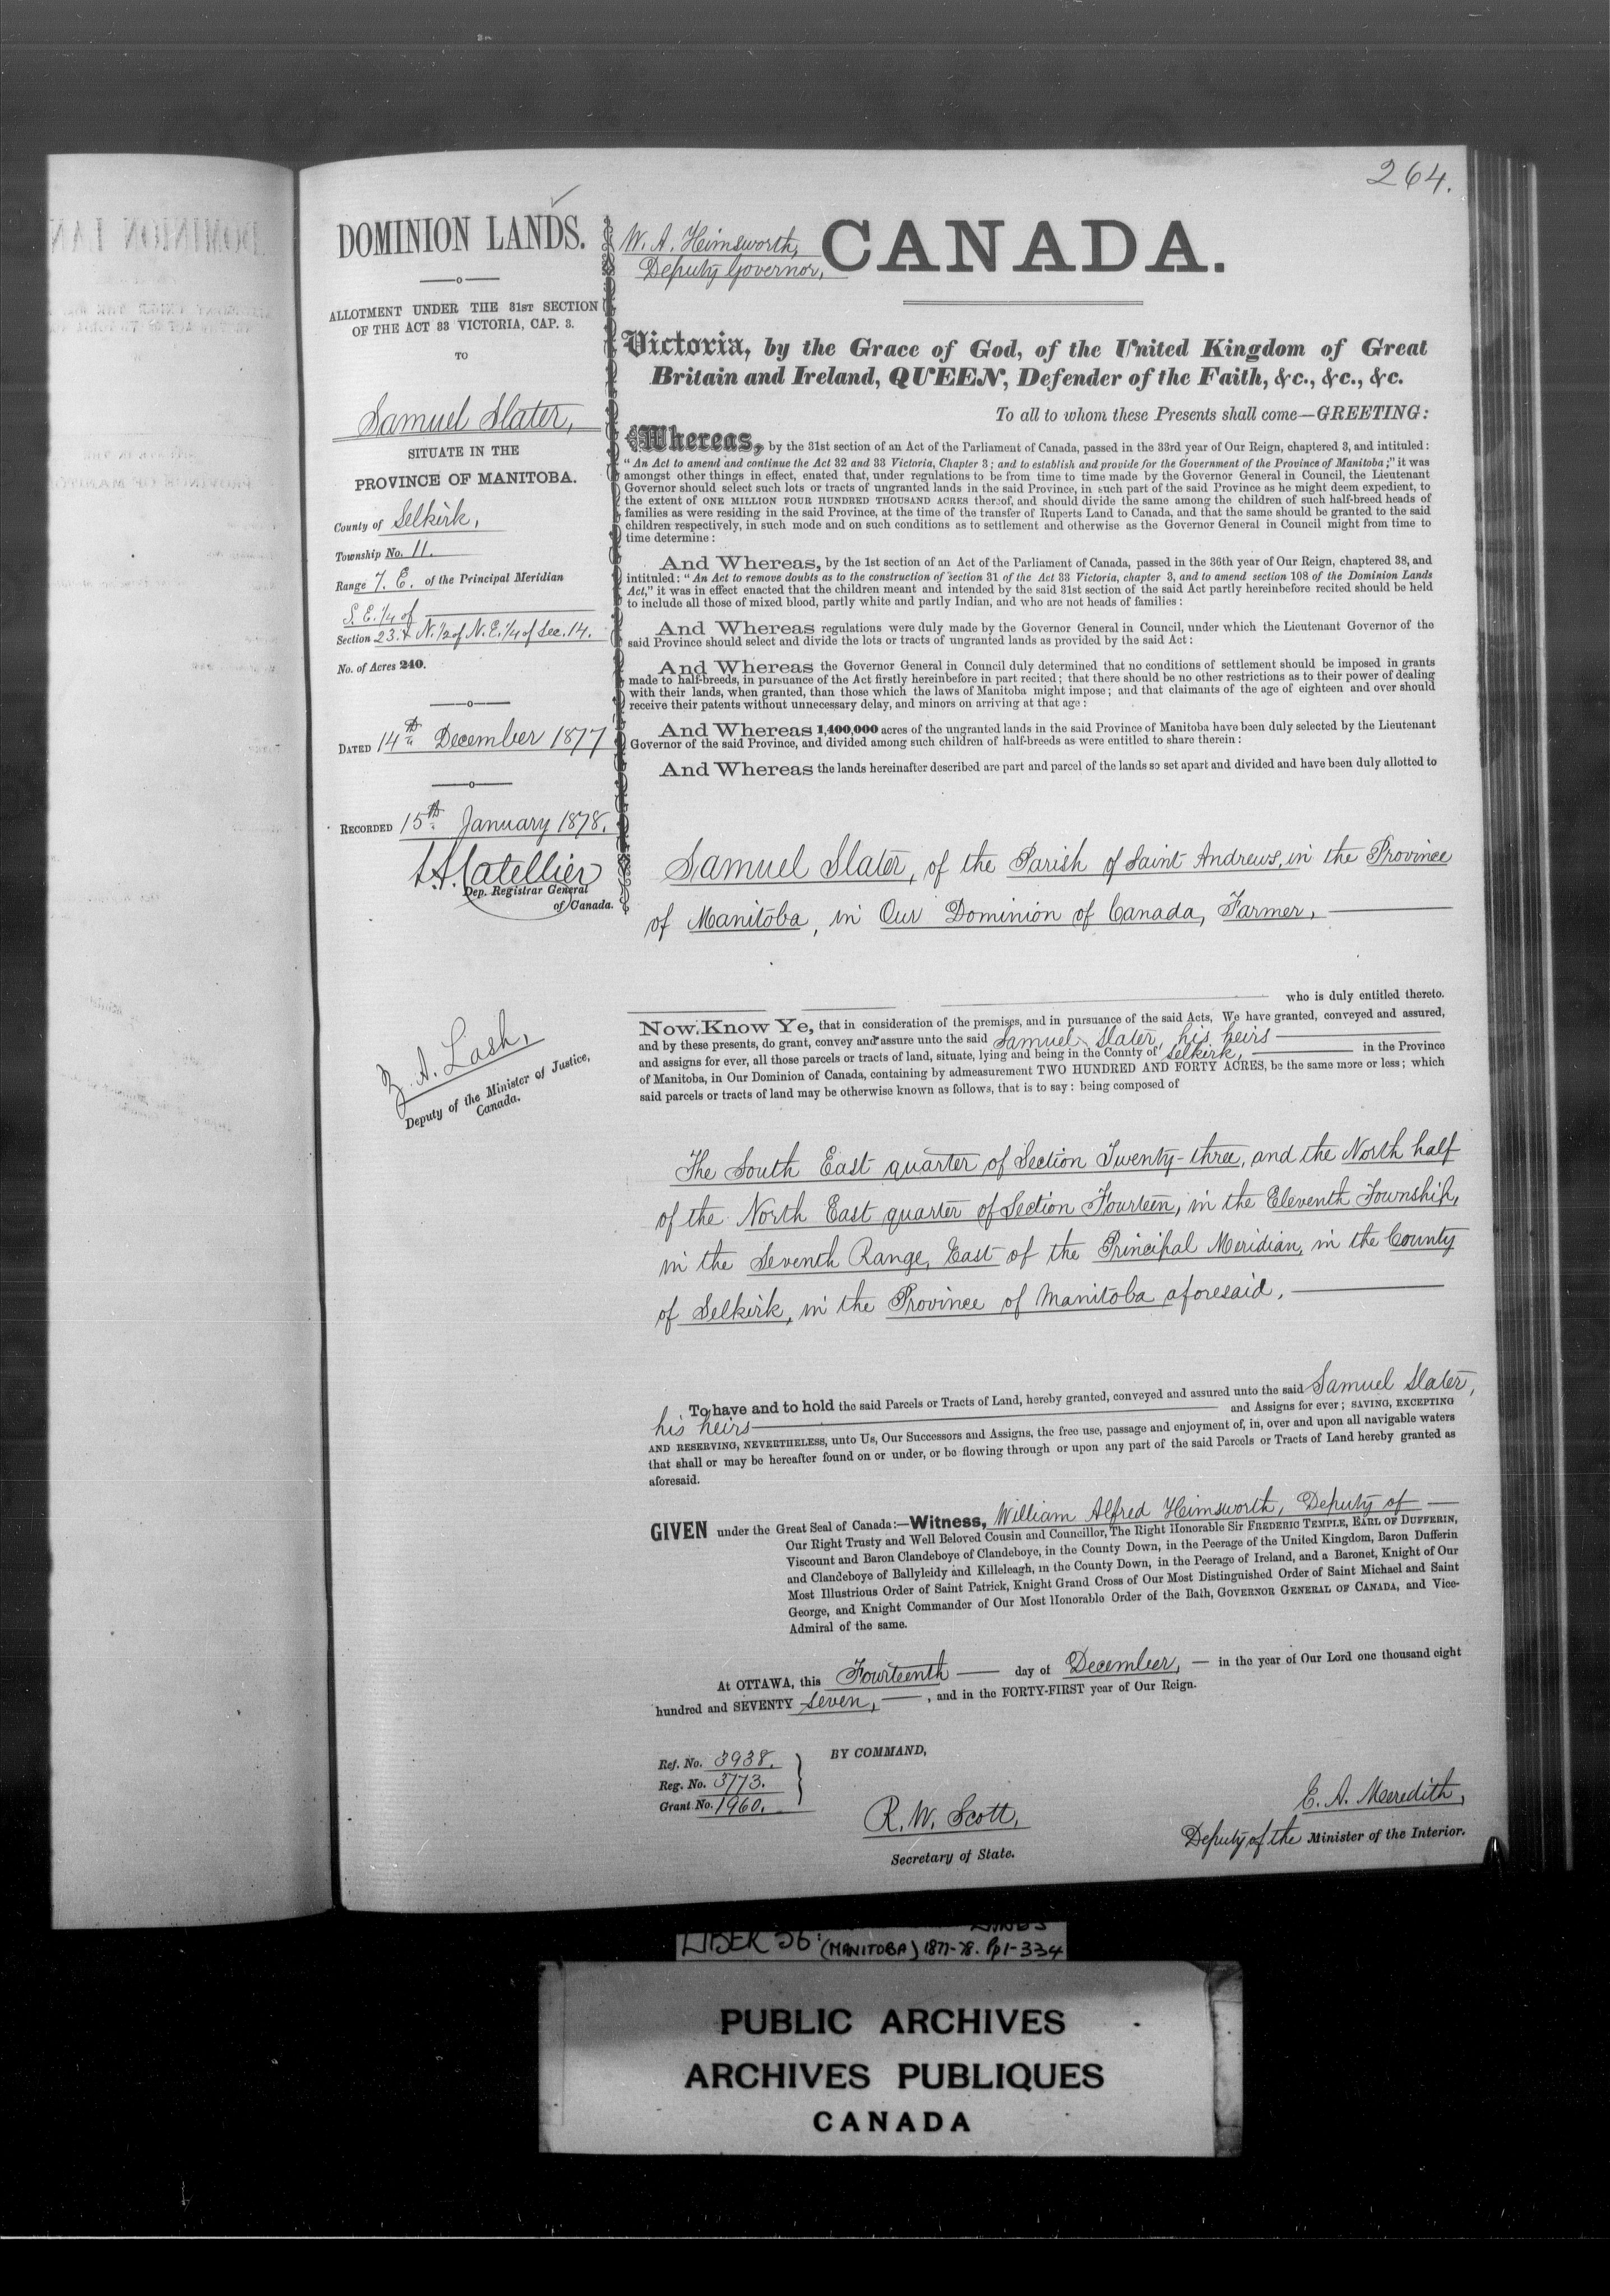 264.
DOMINION LANDS.
ALLOTMENT UNDER THE 31ST SECTION
OF THE ACT 33 VICTORIA, CAP. 3.
TO
Samuel Slater,
SITUATE IN THE
PROVINCE OF MANITOBA.
County of Selkirk,
Township No. 11.
Range 7. E. of the Principal Meridian
S. E. 1/4 of
Section 23. & N. 1/2 of N. E. 1/4 of Sec. 14.
No. of Acres 240.
DATED 14th December 1877
RECORDED 15th January 1878.
L. A. Catellier
Dep. Registrar General
of Canada.
Z. A. Lash,
Deputy of the Minister of Justice,
Canada.
W. A. Himsworth,
Deputy Governor,
CANADA.
Victoria, by the Grace of God, of the United Kingdom of Great
Britain and Ireland, QUEEN, Defender of the Faith, &c., &c., &c.
To all to whom these Presents shall come—GREETING:
Whereas, by the 31st section of an Act of the Parliament of Canada, passed in the 33rd year of Our Reign, chaptered 3, and intituled:
"An Act to amend and continue the Act 32 and 33 Victoria, Chapter 3; and to establish and provide for the Government of the Province of Manitoba;" it was
amongst other things in effect, enated that, under regulations to be from time to time made by the Governor General in Council, the Lieutenant
Governor should select such lots or tracts of ungranted lands in the said Province, in such part of the said Province as he might deem expedient, to
the extent of ONE MILLION FOUR HUNDRED THOUSAND ACRES thereof, and should divide the same among the children of such half-breed heads of
families as were residing in the said Province, at the time of the transfer of Ruperts Land to Canada, and that the same should be granted to the said
children respectively, in such mode and on such conditions as to settlement and otherwise as the Governor General in Council might from time to
time determine:
And Whereas, by the 1st section of an Act of the Parliament of Canada, passed in the 36th year of Our Reign, chaptered 38, and
intituled: "An Act to remove doubts as to the construction of section 31 of the Act 33 Victoria, chapter 3, and to amend section 108 of the Dominion Lands
Act," it was in effect enacted that the children meant and intended by the said 31st section of the said Act partly hereinbefore recited should be held
to include all those of mixed blood, partly white and partly Indian, and who are not heads of families:
And Whereas regulations were duly made by the Governor General in Council, under which the Lieutenant Governor of the
said Province should select and divide the lots or tracts of ungranted lands as provided by the said Act:
And Whereas the Governor General in Council duly determined that no conditions of settlement should be imposed in grants
made to half-breeds, in pursuance of the Act firstly hereinbefore in part recited; that there should be no other restrictions as to their power of dealing
with their lands, when granted, than those which the laws of Manitoba might impose; and that claimants of the age of eighteen and over should
receive their patents without unnecessary delay, and minors on arriving at that age:
And Whereas 1,400,000 acres of the ungranted lands in the said Province of Manitoba have been duly selected by the Lieutenant
Governor of the said Province, and divided among such children of half-breeds as were entitled to share therein:
And Whereas the lands hereinafter described are part and parcel of the lands so set apart and divided and have been duly allotted to
Samuel Slater, of the Parish of Saint Andrews, in the Province
of Manitoba, in Our Dominion of Canada, Farmer,
who is duly entitled thereto.
Now Know Ye, that in consideration of the premises, and in pursuance of the said Acts, We have granted, conveyed and assured,
and by these presents, do grant, convey and assure unto the said Samuel Slater, his heirs
and assigns for ever, all those parcels or tracts of land, situate, lying and being in the County of Selkirk, in the Province
of Manitoba, in Our Dominion of Canada, containing by admeasurement TWO HUNDRED AND FORTY ACRES, be the same more or less; which
said parcels or tracts of land may be otherwise known as follows, that is to say: being composed of
The South East quarter of Section Twenty-three, and the North half
of the North East quarter of Section Fourteen, in the Eleventh Township,
in the Seventh Range, East of the Principal Meridian, in the County
of Selkirk, in the Province of Manitoba aforesaid.
To have and to hold the said Parcels or Tracts of Land, hereby granted, conveyed and assured unto the said Samuel Slater,
his heirs and Assigns for ever; SAVING, EXCEPTING
AND RESERVING, NEVERTHELESS, unto Us, Our Successors and Assigns, the free use, passage and enjoyment of, in, over and upon all navigable waters
that shall or may be hereafter found on or under, or be flowing through or upon any part of the said Parcels or Tracts of Land hereby granted as
aforesaid.
GIVEN under the Great Seal of Canada:—Witness, William Alfred Himsworth, Deputy of
Our Right Trusty and Well Beloved Cousin and Councillor, The Right Honorable Sir FREDERIC TEMPLE, EARL OF DUFFERIN,
Viscount and Baron Clandeboye of Clandeboye, in the County Down, in the Peerage of the United Kingdom, Baron Dufferin
and Clandeboye of Ballyleidy and Killeleagh, in the County Down, in the Peerage of Ireland, and a Baronet, Knight of Our
Most Illustrious Order of Saint Patrick, Knight Grand Cross of Our Most Distinguished Order of Saint Michael and Saint
George, and Knight Commander of Our Most Honorable Order of the Bath, GOVERNOR GENERAL OF CANADA, and Vice-
Admiral of the same.
At OTTAWA, this Fourteenth day of December, in the year of Our Lord one thousand eight
hundred and SEVENTY seven, , and in the FORTY-FIRST year of Our Reign.
Ref. No. 3938.
Reg. No. 3773.
Grant No. 1960.
BY COMMAND,
R. W. Scott,
Secretary of State.
E. A. Meredith,
Deputy of the Minister of the Interior.
LIBER 56: (MANITOBA) 1877-78. Pp 1-334
PUBLIC ARCHIVES
ARCHIVES PUBLIQUES
CANADA